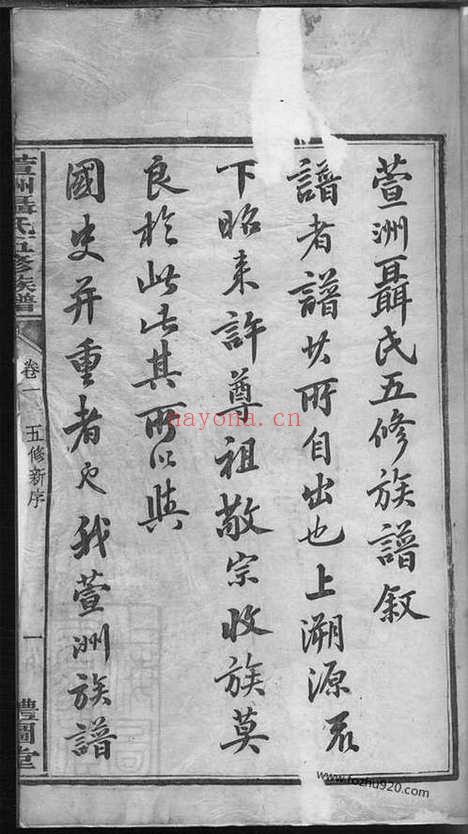 萱洲聶氏五修族譜敘
譜者譜其所自出也上溯源流
下昭来許尊祖敬宗收族莫
良於此此其所以與
國史并重者也我萱洲族譜
萱洲聶氏五修族譜
卷一
五修新序
一
禮圃堂
nayona.cn
www.fozhu920.com